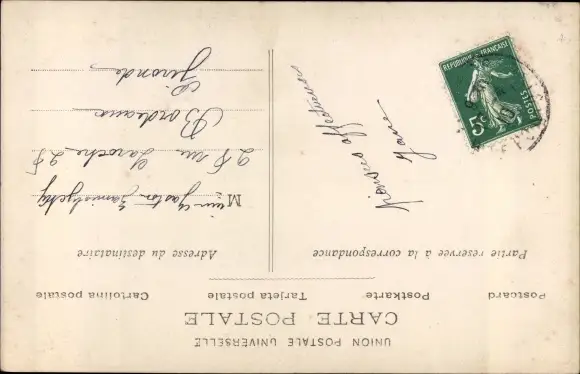 UNION POSTALE UNIVERSELLE
CARTE POSTALE
Postcard Postkarte Tarjeta postale Cartolina postale
Partie réservée à la correspondance
Adresse du destinataire
affectueuses
M
Gaston
28 rue Laroche 28
Bordeaux
Gironde
RÉPUBLIQUE FRANÇAISE
POSTES
5c